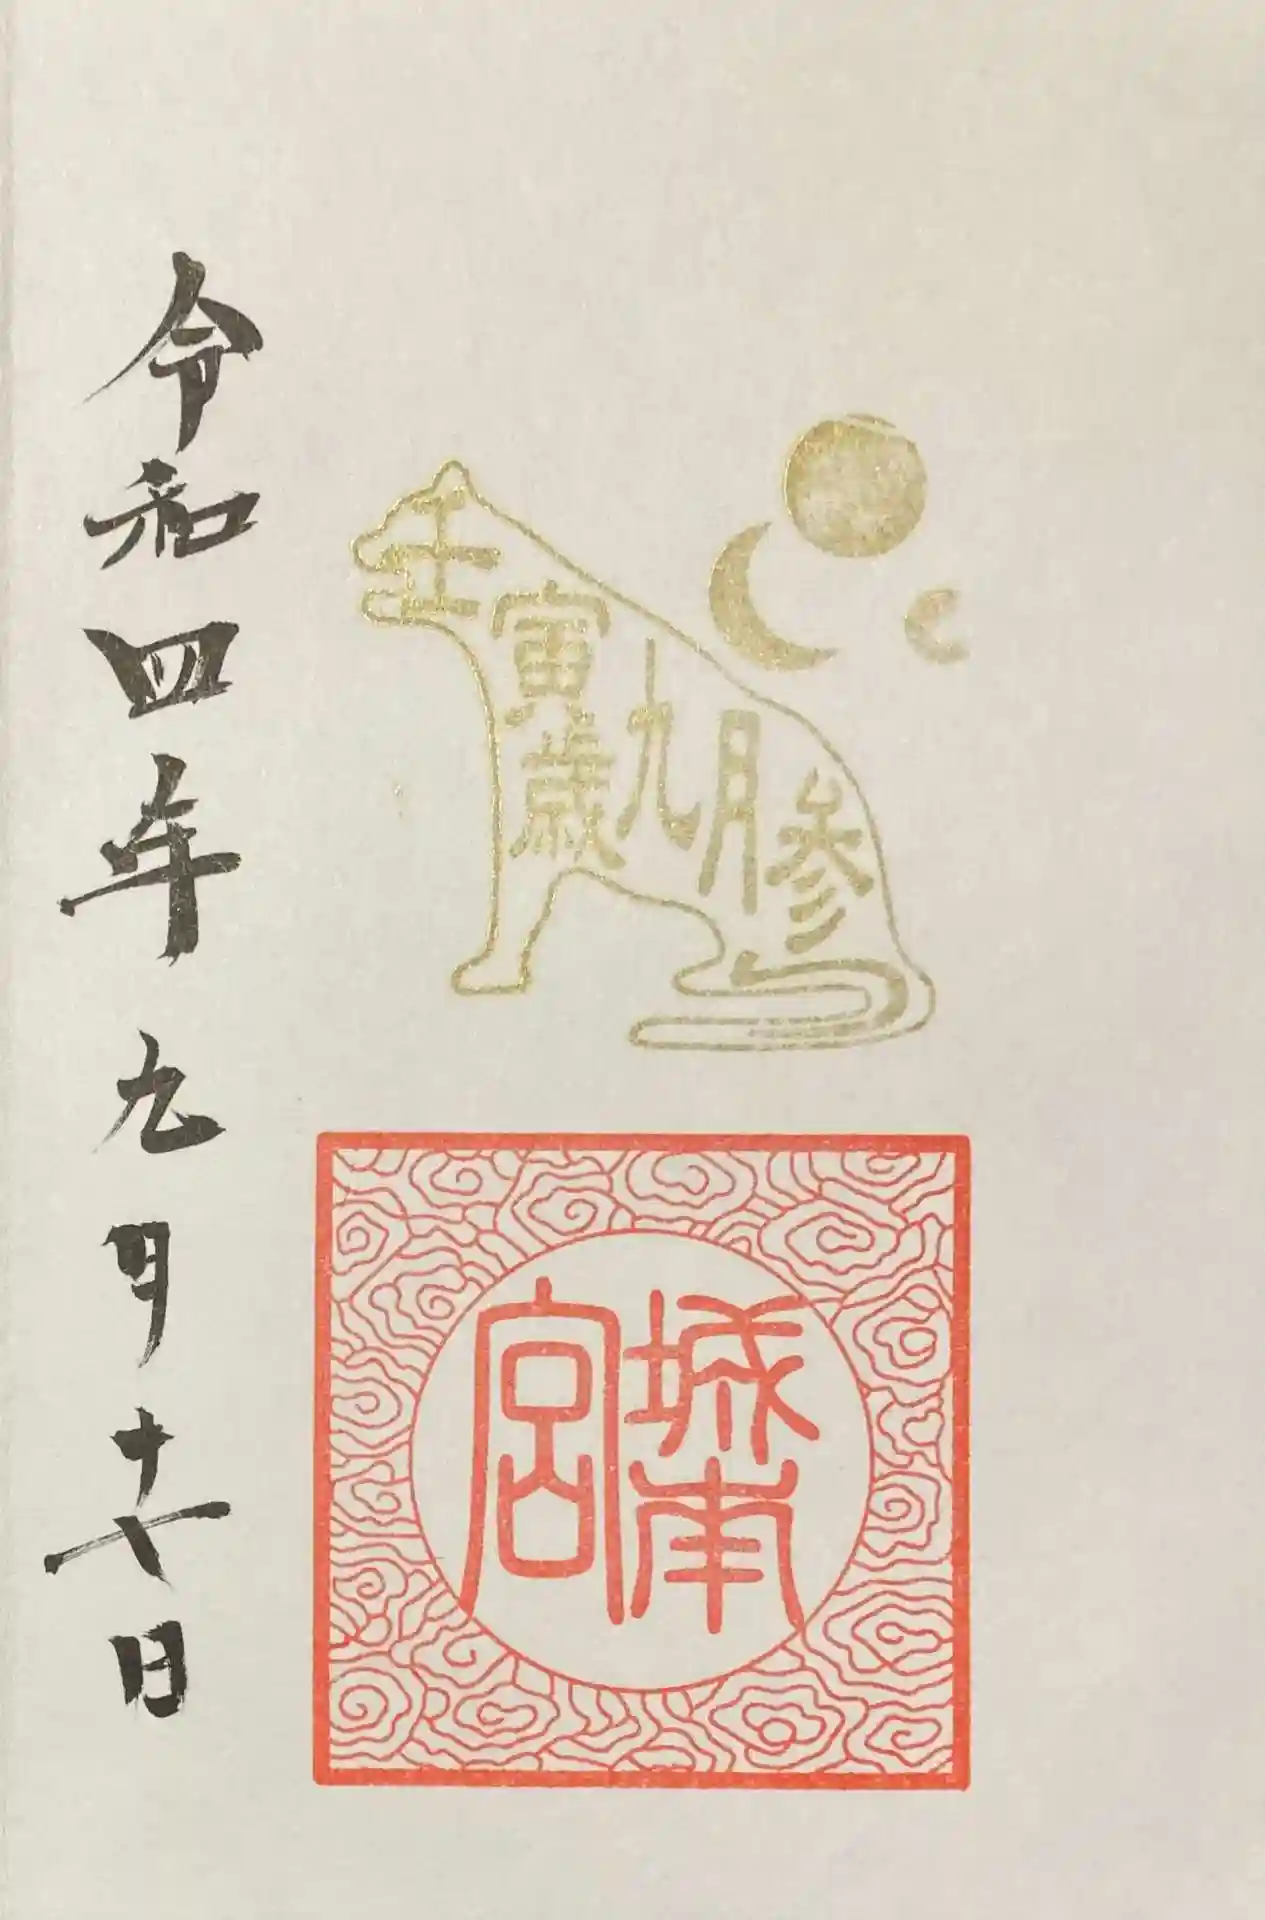 壬寅歳九月参
城南
宮
令和四年九月十七日